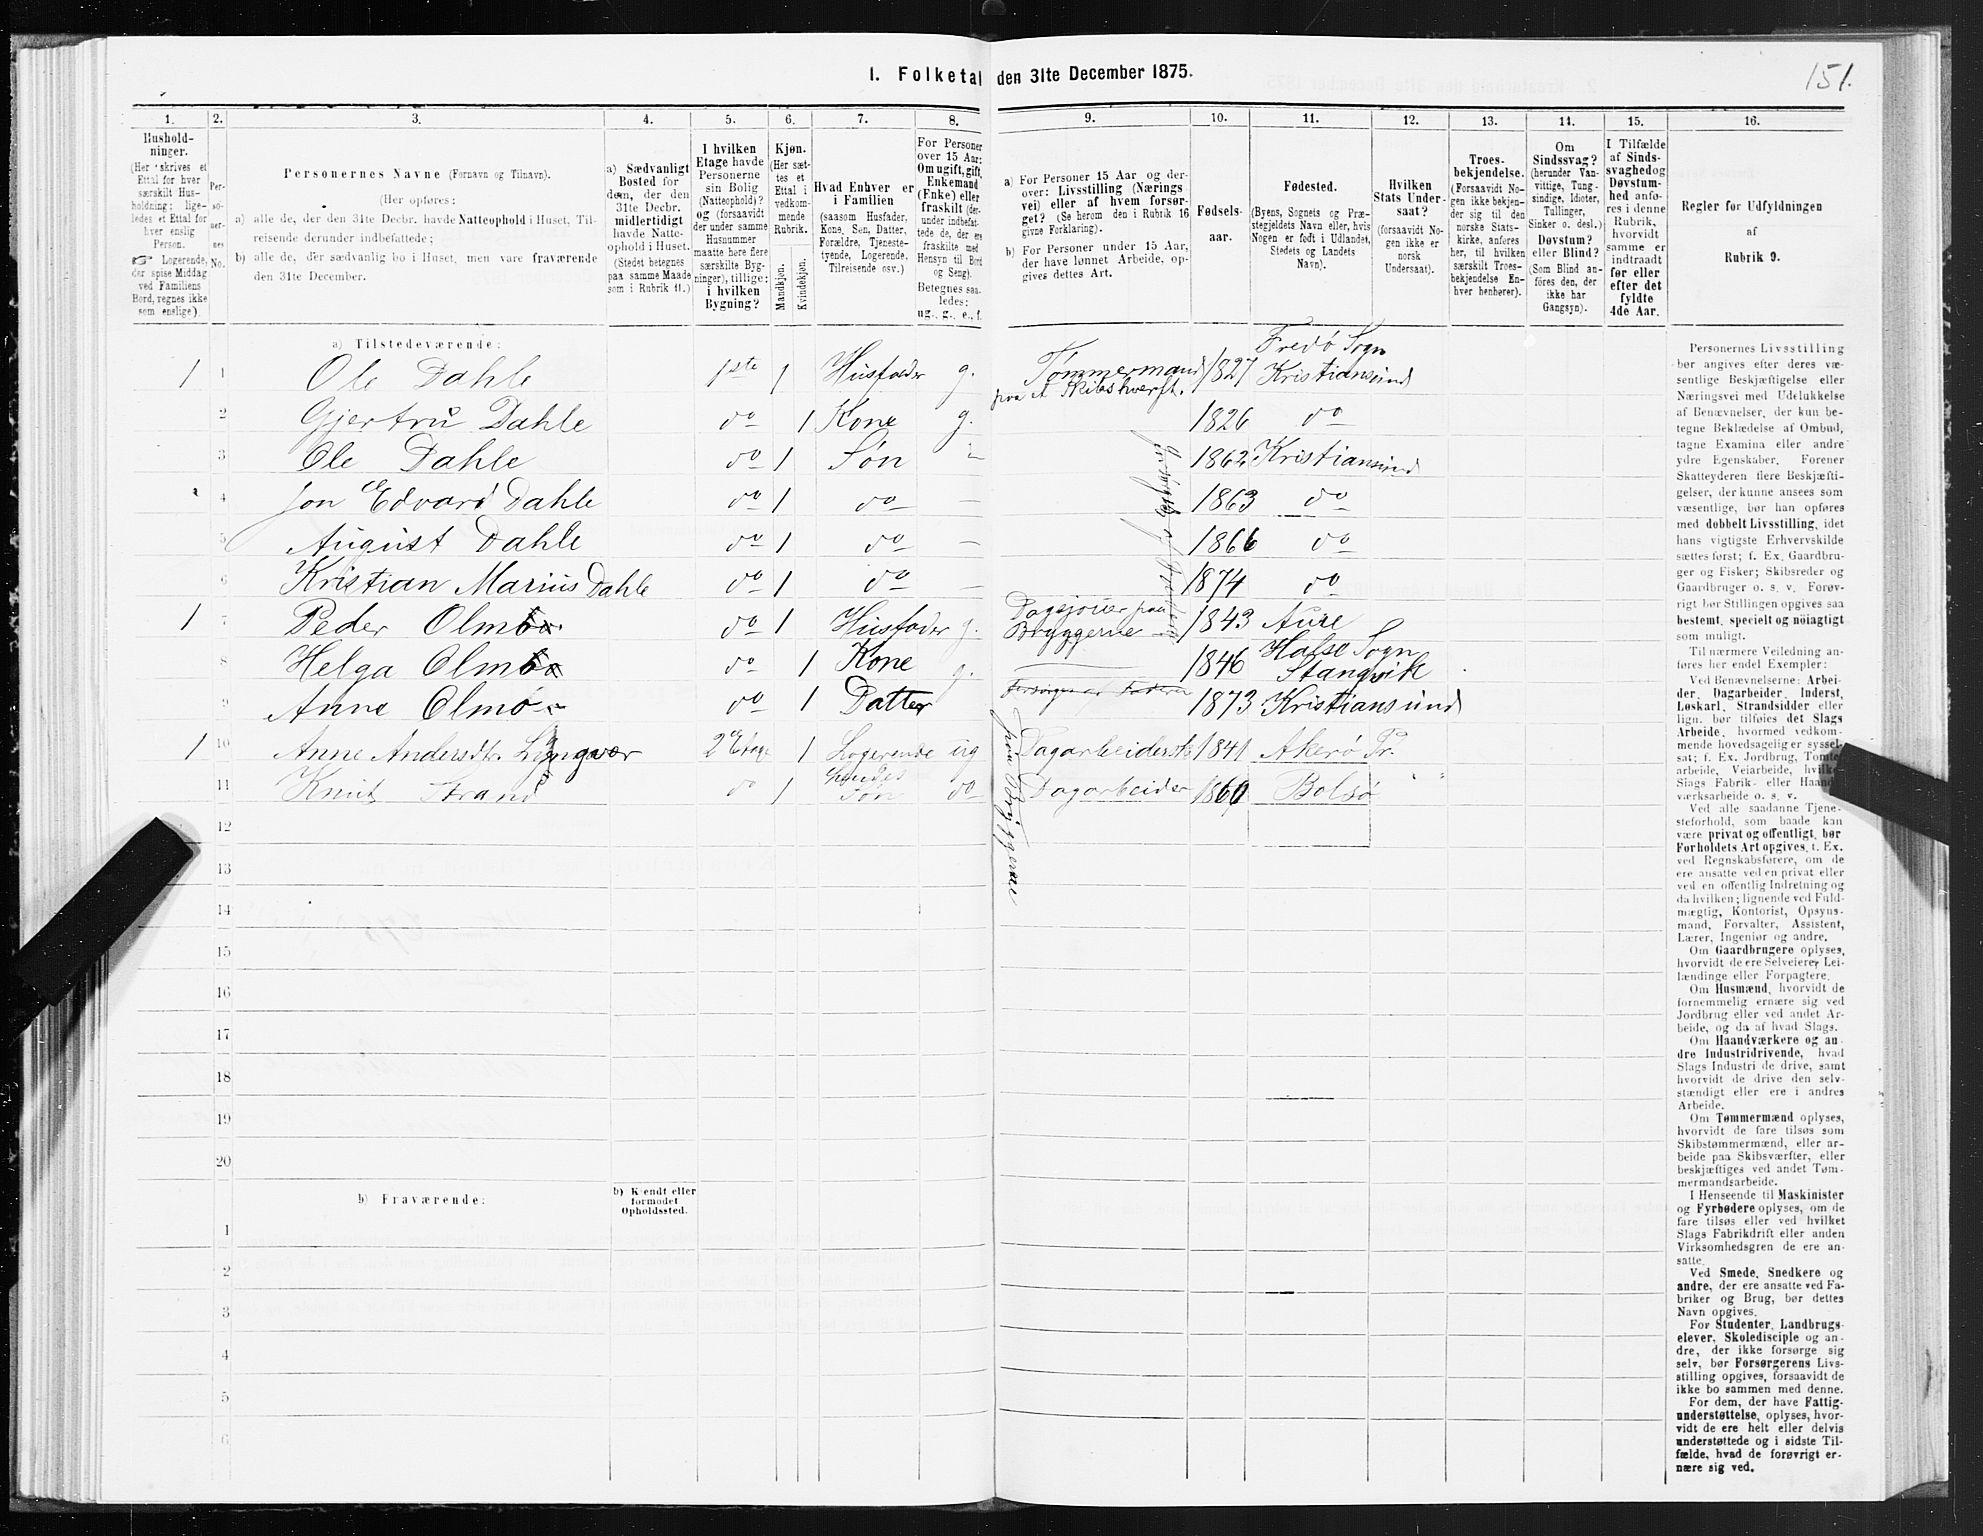 1. Folketal den 31te December 1875.
151.
1. 2. 3. 4. 5. 6. 7. 8. 9. 10. 11. 12. 13. 14. 15. 16.
Hushold-
ninger.
(Her skrives et
Ettal for hver
særskilt Hus-
holdning; lige-
ledes et Ettal for
hver enslig
Person.
☞ Logerende,
der spise Middag
ved Familiens
Bord, regnes ikke
som enslige).
Per-
so-
ner-
nes
No.
Personernes Navne (Fornavn og Tilnavn).
(Her opføres:
a) alle de, der den 31te Decbr. havde Natteophold i Huset, Til-
reisende derunder indbefattede;
b) alle de, der sædvanlig bo i Huset, men vare fraværende
den 31te December.
a) Sædvanligt
Bosted for
dem, der den
31te Decbr.
midlertidigt
havde Natte-
ophold i Huset.
(Stedet betegnes
paa samme Maade
som i Rubrik 11.)
I hvilken
Etage havde
Personerne
sin Bolig
(Natteophold)?
og (forsaavidt
der under samme
Husnummer
maatte høre flere
særskilte Byg-
ninger), tillige:
i hvilken
Bygning?
Kjøn.
(Her sæt-
tes et
Ettal i
vedkom-
mende
Rubrik.
Mandkjøn.
Kvindekjøn.
Hvad Enhver er
i Familien
(saasom Husfader,
Kone, Søn, Datter,
Forældre, Tjeneste-
tyende, Logerende,
Tilreisende osv.)
For Personer
over 15 Aar:
Om ugift, gift,
Enkemand
(Enke) eller
fraskilt (der-
under indbefat-
tede de, der ere
fraskilte med
Hensyn til Bord
og Seng).
Betegnes saa-
ledes:
ug., g., e., f.
a) For Personer 15 Aar og der-
over: Livsstilling (Nærings-
vei) eller af hvem forsør-
get? (Se herom den i Rubrik 16
givne Forklaring).
b) For Personer under 15 Aar,
der have lønnet Arbeide, op-
gives dettes Art.
Fødsels-
aar.
Fødested.
(Byens, Sognets og Præ-
stegjeldets Navn eller, hvis
Nogen er født i Udlandet,
Stedets og Landets
Navn).
Hvilken
Stats Under-
saat?
(forsaavidt No-
gen ikke er
norsk
Undersaat).
Troes-
bekjendelse.
(Forsaavidt No-
gen ikke bekjen-
der sig til den
norske Stats-
kirke, anføres
her, til hvilken
særskilt Troes-
bekjendelse En-
hver henhører).
Om
Sindssvag?
(herunder Van-
vittige, Tung-
sindige, Idioter,
Tullinger,
Sinker o. desl.)
Døvstum?
eller Blind?
(Som Blind an-
føres den, der
ikke har
Gangsyn).
I Tilfælde
af Sinds-
svaghed og
Døvstum-
hed anfø-
res i denne
Rubrik,
hvorvidt
samme er
indtraadt
før eller
efter det
fyldte
4de Aar.
Regler for Udfyldningen
af
Rubrik 9.
a) Tilstedeværende:
1 1 Ole Dahle 1ste 1 Husfader g. Tømmermand paa et Skibsværft. 1827 Fredø Sogn Kristiansund
2 Gjertru Dahle do 1 Kone g. 1826 do
3 Ole Dahle do 1 Søn 1862 Kristiansund
4 Jon Edvard Dahle do 1 do — 1863 do
5 August Dahle do 1 do — 1866 do
6 Kristian Marius Dahle do 1 do — 1874 do
forsørges af Forældrene
1 7 Peder Olmo do 1 Husfader g. Dagsjouer paa Bryggerne 1843 Aure
8 Helga Olmo do 1 Kone g. 1846 Halse Sogn Stangvik
9 Anne Olmo do 1 Datter Forsørges af Faderen 1873 Kristiansund
1 10 Anne Andersdtr. Lyngvær 2 Etage 1 Logerende ug Dagarbeiderske 1841 Akerø Pr.
11 Knut Strand do 1 hendes Søn do Dagarbeider 1860 Bolsø " "
paa Bryggerne
12
13
14
15
16
17
18
19
20
b) Fraværende:
b) Kjendt eller
formodet
Opholdssted.
1
2
3
4
5
6
Personernes Livsstilling
bør angives efter deres væ-
sentlige Beskjæftigelse eller
Næringsvei med Udelukkelse
af Benævnelser, der kun be-
tegne Beklædelse af Ombud,
tagne Examina eller andre
ydre Egenskaber. Forener
Skatteyderen flere Beskjæfti-
gelser, der kunne ansees som
væsentlige, bør han opføres
med dobbelt Livsstilling, idet
hans vigtigste Erhvervskilde
sættes først; f. Ex. Gaardbru-
ger og Fisker; Skibsreder og
Gaardbruger o. s. v. Forøv-
rigt bør Stillingen opgives saa
bestemt, specielt og nöiagtigt
som muligt.
Til nærmere Veiledning an-
føres her endel Exempler:
Ved Benævnelserne: Arbei-
der, Dagarbeider, Inderst,
Løskarl, Strandsidder eller
lign. bør tilføies det Slags
Arbeide, hvormed vedkom-
mende hovedsagelig er syssel-
sat; f. Ex. Jordbrug, Tomte-
arbeide, Veiarbeide, hvilket
Slags Fabrik- eller Haand-
værksarbeide o. s. v.
Ved alle saadanne Tjene-
steforhold, som baade kan
være privat og offentligt, bør
Forholdets Art opgives, f. Ex.
ved Regnskabsførere, om de
ere ansatte ved en privat eller
ved en offentlig Indretning og
da hvilken; lignende ved Fuld-
mægtig, Kontorist, Opsyns-
mand, Forvalter, Assistent,
Lærer, Ingeniør og andre.
Om Gaardbrugere oplyses,
hvorvidt de ere Selveiere, Lei-
lændinge eller Forpagtere.
Om Husmænd, hvorvidt de
fornemmelig ernære sig ved
Jordbrug eller ved andet Ar-
beide, og da af hvad Slags.
Om Haandværkere og an-
dre Industridrivende, hvad
Slags Industri de drive, samt
hvorvidt de drive den selv-
stændigt eller ere i andres
Arbeide.
Om Tømmermænd oplyses,
hvorvidt de fare tilsøs som
Skibstømmermænd, eller ar-
beide paa Skibsværfter, eller
beskjæftiges ved andet Tøm-
mermandsarbeide.
I Henseende til Maskinister
og Fyrbødere oplyses, om de
fare tilsøs eller ved hvilket
Slags Fabrikdrift eller anden
Virksomhedsgren de ere an-
satte.
Ved Smede, Snedkere og
andre, der ere ansatte ved Fa-
briker og Brug, bør dettes
Navn opgives.
For Studenter, Landbrugs-
elever, Skoledisciple og an-
dre, der ikke forsørge sig
selv, bør Forsørgerens Livs-
stilling opgives, forsaavidt de
ikke bo sammen med denne.
For dem, der have Fattig-
understøttelse, oplyses, hvor-
vidt de ere helt eller delvis
understøttede og i sidste Til-
fælde, hvad de forøvrigt er-
nære sig ved.